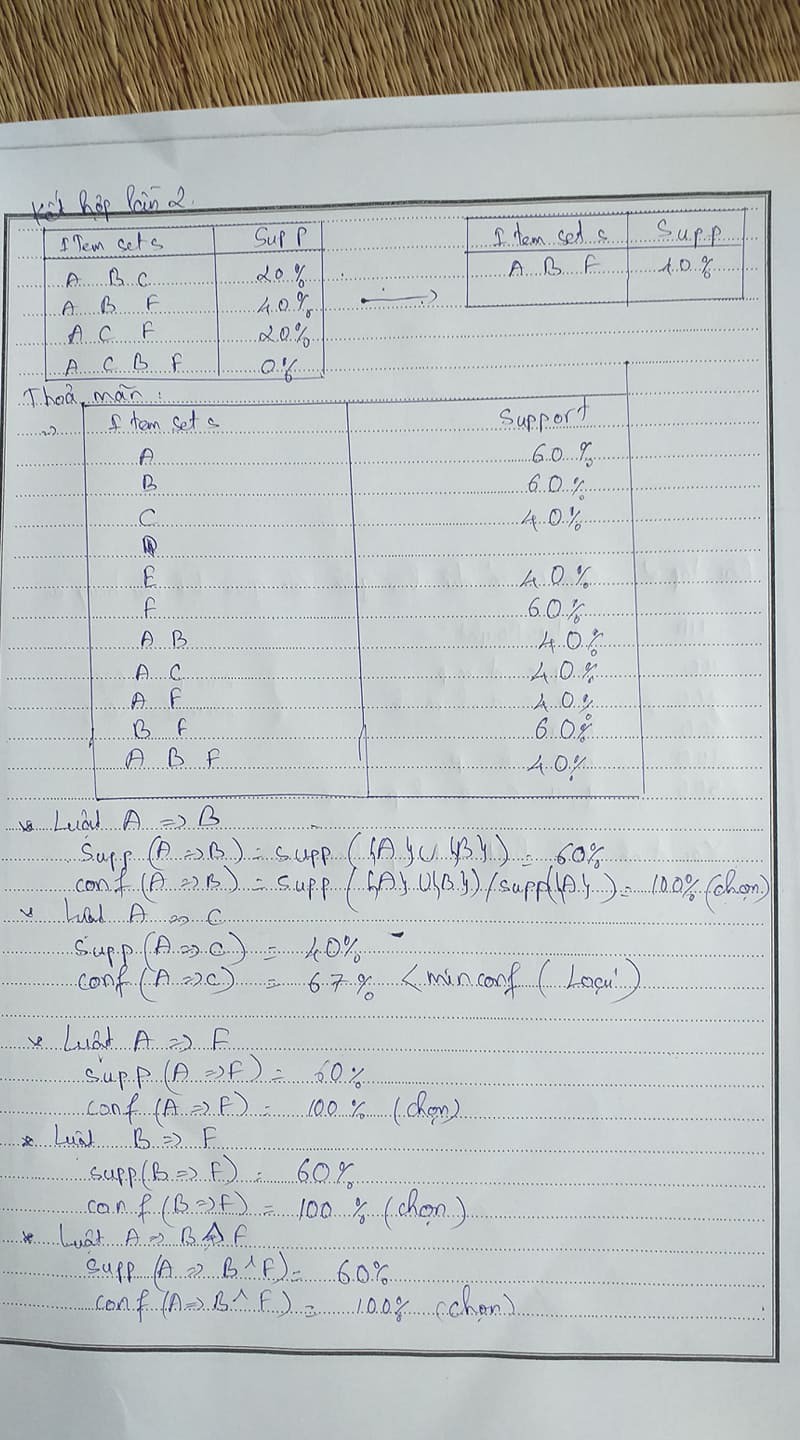 Kết hợp lần 2.
Item sets Supp
A B C 20%
A B F 40%
A C F 20%
A C B F 0%
Item sets Supp
A B F 40%
Thoả mãn:
=> Item sets Support
A 60%
B 60%
C 40%
E 40%
F 60%
A B 40%
A C 40%
A F 40%
B F 60%
A B F 40%
* Luật A => B
Supp (A => B) = supp ({A} ∪ {B}) = 60%
conf (A => B) = supp ({A} ∪ {B}) / supp({A}) = 100% (chọn)
* Luật A => C
Supp (A => C) = 40%
conf (A => C) = 67% < minconf (Loại)
* Luật A => F
Supp (A => F) = 60%
conf (A => F) = 100% (chọn)
* Luật B => F
supp (B => F) = 60%
conf (B => F) = 100% (chọn)
* Luật A => B ^ F
Supp (A => B ^ F) = 60%
conf (A => B ^ F) = 100% (chọn)